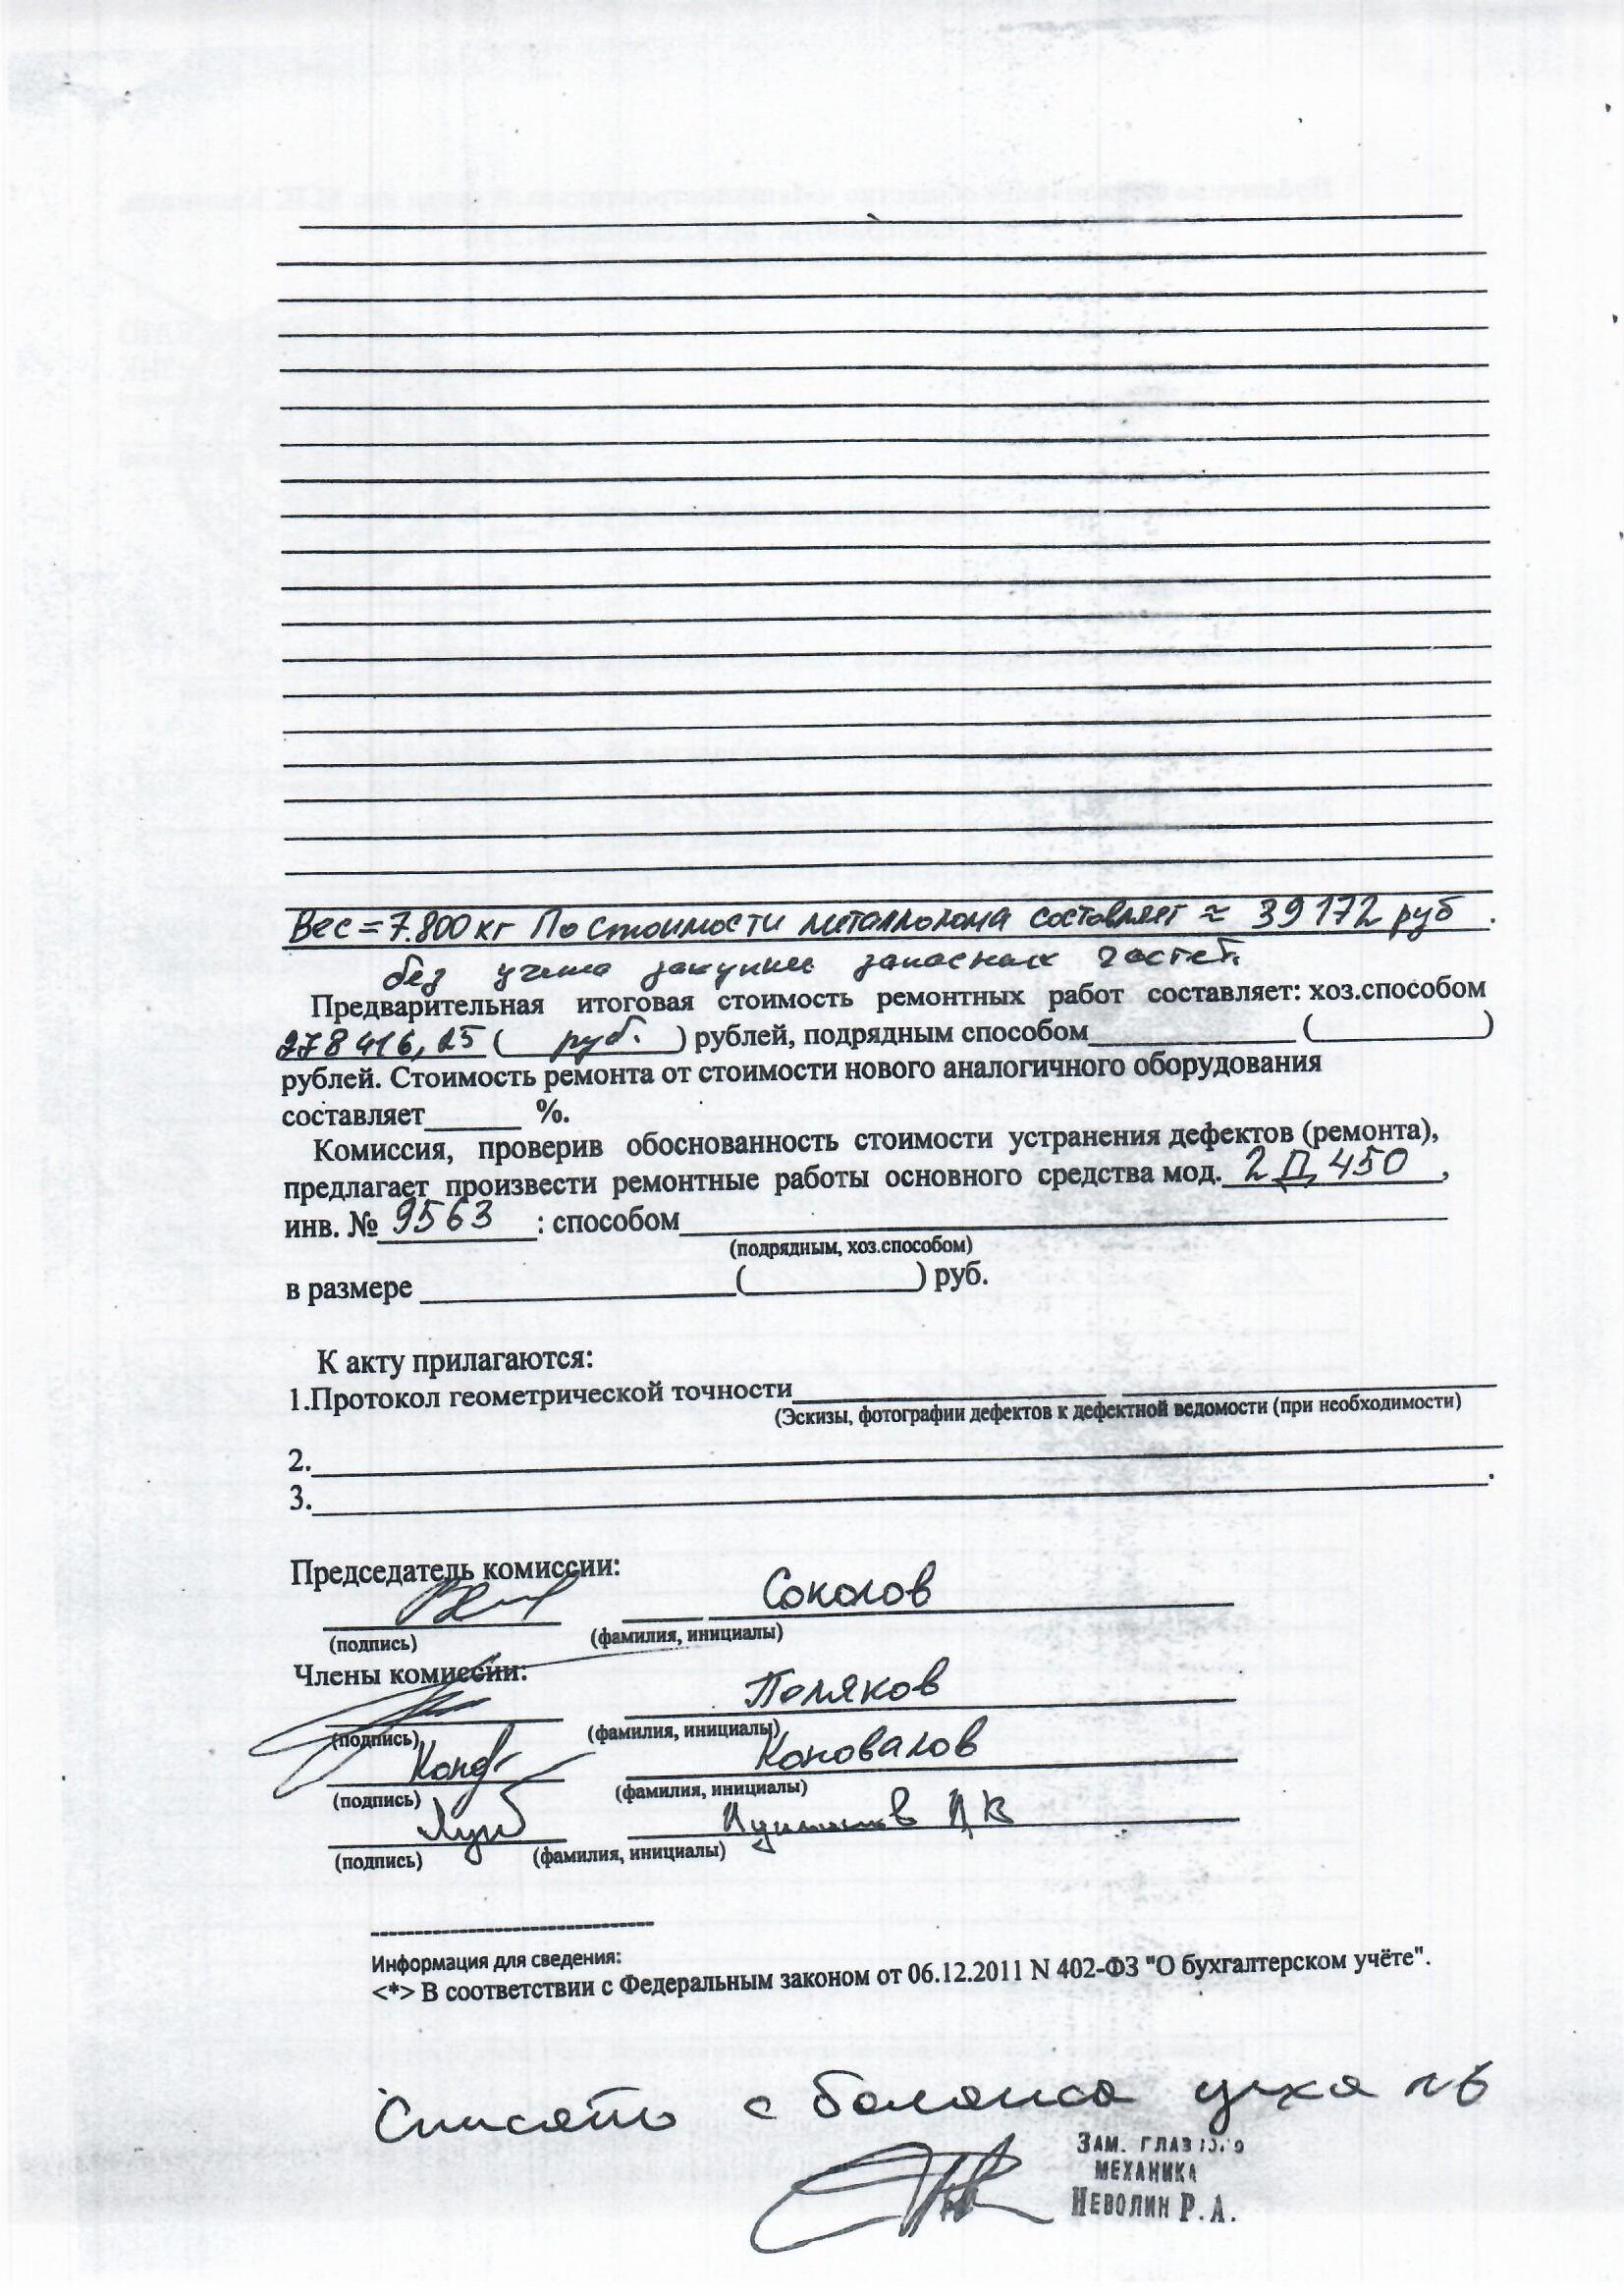 Вес = 7.800 кг По стоимости металлолома составляет ≈ 39172 руб.
без учета закупки запасных частей.
Предварительная итоговая стоимость ремонтных работ составляет: хоз.способом
278 416,25 ( руб. ) рублей, подрядным способом______________ (____________)
рублей. Стоимость ремонта от стоимости нового аналогичного оборудования
составляет______ %.
Комиссия, проверив обоснованность стоимости устранения дефектов (ремонта),
предлагает произвести ремонтные работы основного средства мод. 2Д450,
инв. № 9563 : способом____________
(подрядным, хоз.способом)
в размере ____________(____________) руб.
К акту прилагаются:
1.Протокол геометрической точности____________ ____________
(Эскизы, фотографии дефектов к дефектной ведомости (при необходимости)
2.____________
3.____________.
Председатель комиссии:
Соколов
(подпись) (фамилия, инициалы)
Члены комиссии:
Поляков
(подпись) (фамилия, инициалы)
Коновалов
(подпись) (фамилия, инициалы)
(подпись) (фамилия, инициалы)
Информация для сведения:
<*> В соответствии с Федеральным законом от 06.12.2011 N 402-ФЗ "О бухгалтерском учёте".
Списать с баланса цеха №6
ЗАМ. ГЛАВНОГО
МЕХАНИКА
НЕВОЛИН Р.А.